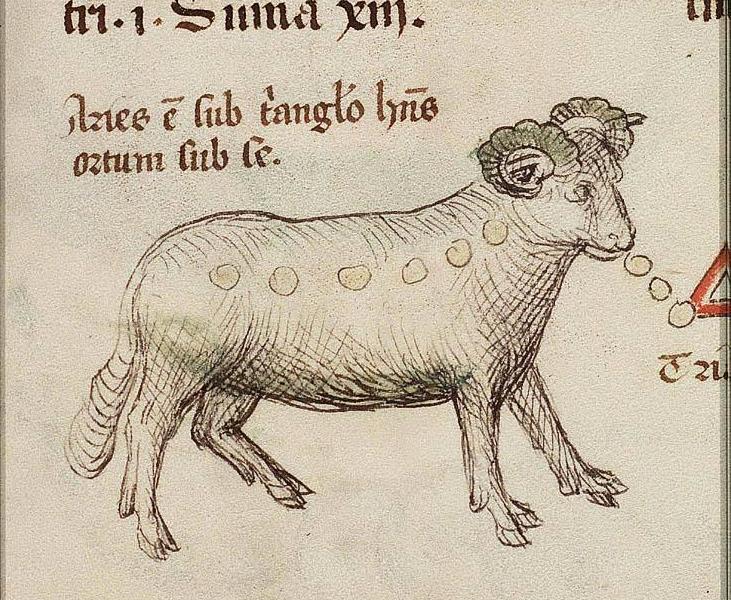 tri. i. Suma xiij.
Aries ē sub triangło hn̄s
ortum sub se.
Tri